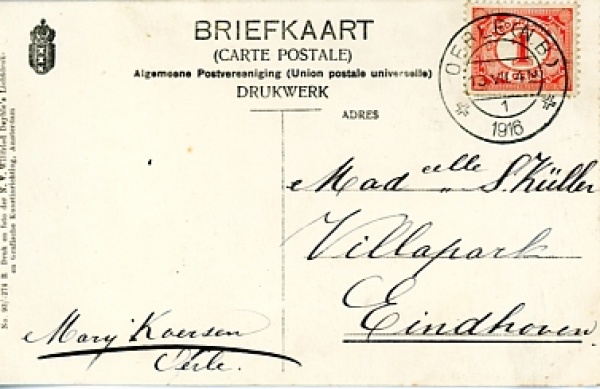 BRIEFKAART
(CARTE POSTALE)
Algemeene Postvereeniging (Union postale universelle)
DRUKWERK
ADRES
1
OERLE (N.B.)
1
1916
Mad elle „ S. Küller
Villapark
Eindhoven.
Mary Koersen
Oerle.
No 93/274 B Druk en foto der N. V. Wilfried Deyhle's Lichtdruk-
en Grafische Kunstinrichting, Amsterdam